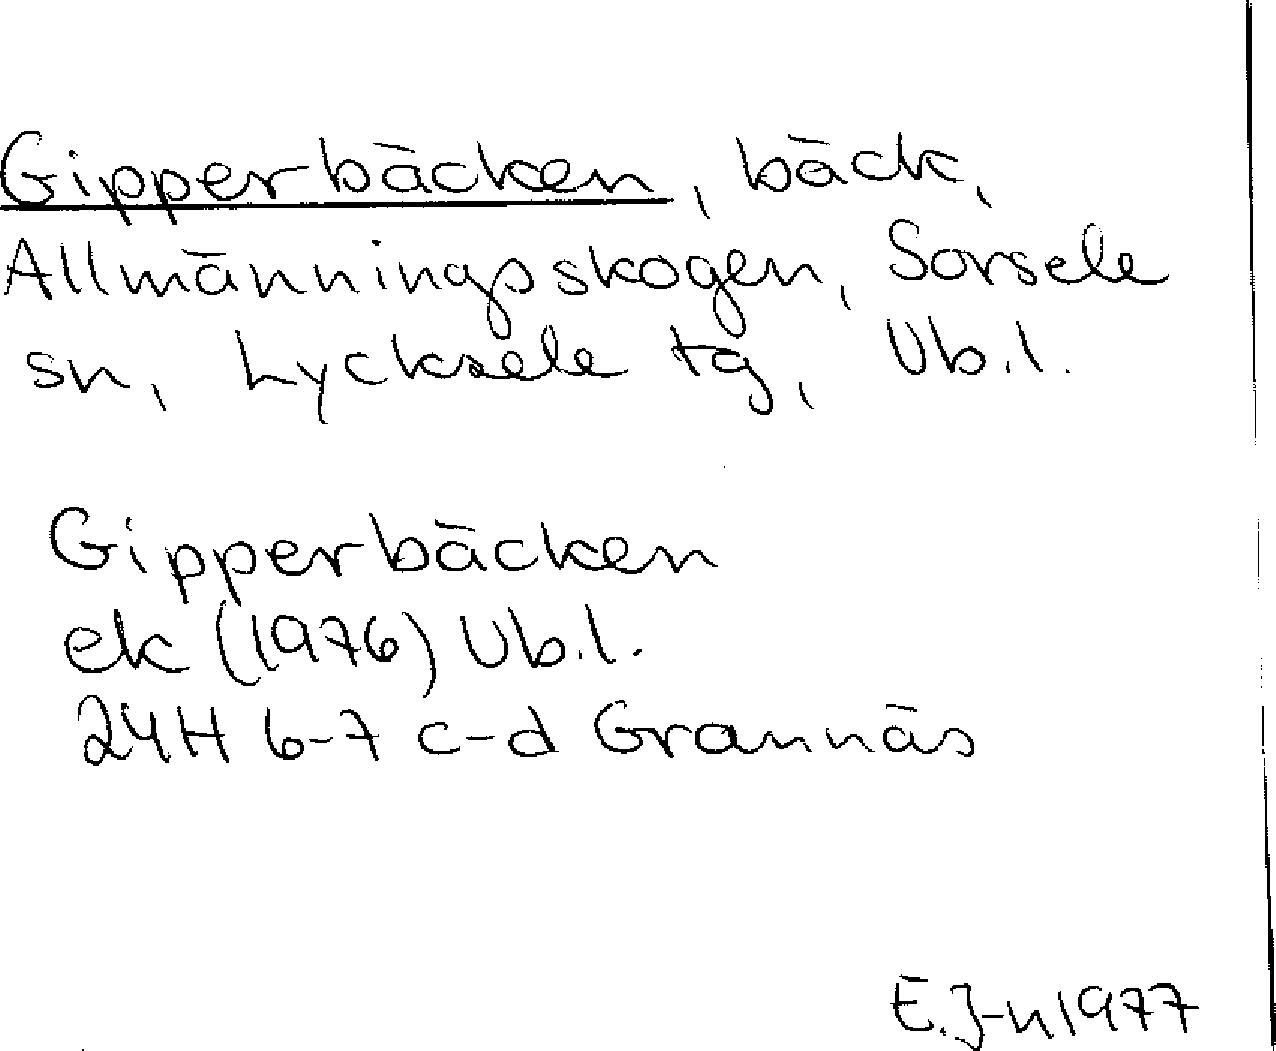 Gipperbäcken, bäck,
Allmänningsskogen, Sorsele
sn, Lycksele tg, Vb.l.
Gipperbäcken
ek (1976) Vb.l.
24H 6-7 c-d Grannäs
E.J-n 1977